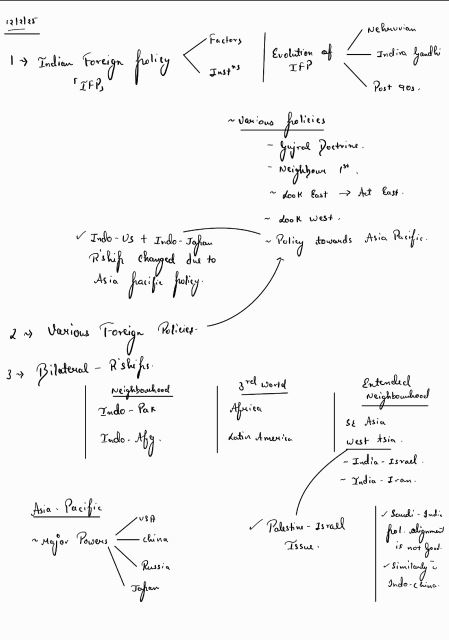 12/2/25
1 → Indian Foreign policy
"IFP"
Factors
Instns
Evolution of
IFP
Nehruvian
Indira Gandhi
Post 90s.
~ Various policies
~ Gujral Doctrine.
~ Neighbour 1st.
~ Look East → Act East.
~ Look West.
~ Policy towards Asia Pacific.
✓ Indo-US + Indo-Japan
R'ship changed due to
Asia pacific policy.
2 → Various Foreign Policies.
3 → Bilateral - R'ships.
Neighbourhood
Indo-Pak
Indo-Afg.
3rd World
Africa
Latin America
Extended
Neighbourhood
SE Asia
West Asia.
~ India-Israel.
~ India-Iran.
Asia-Pacific
~ Major Powers
USA
China
Russia
Japan
✓ Palestine-Israel
Issue.
✓ Saudi-India
pol. alignment
is not good.
✓ Similarly
Indo-China.